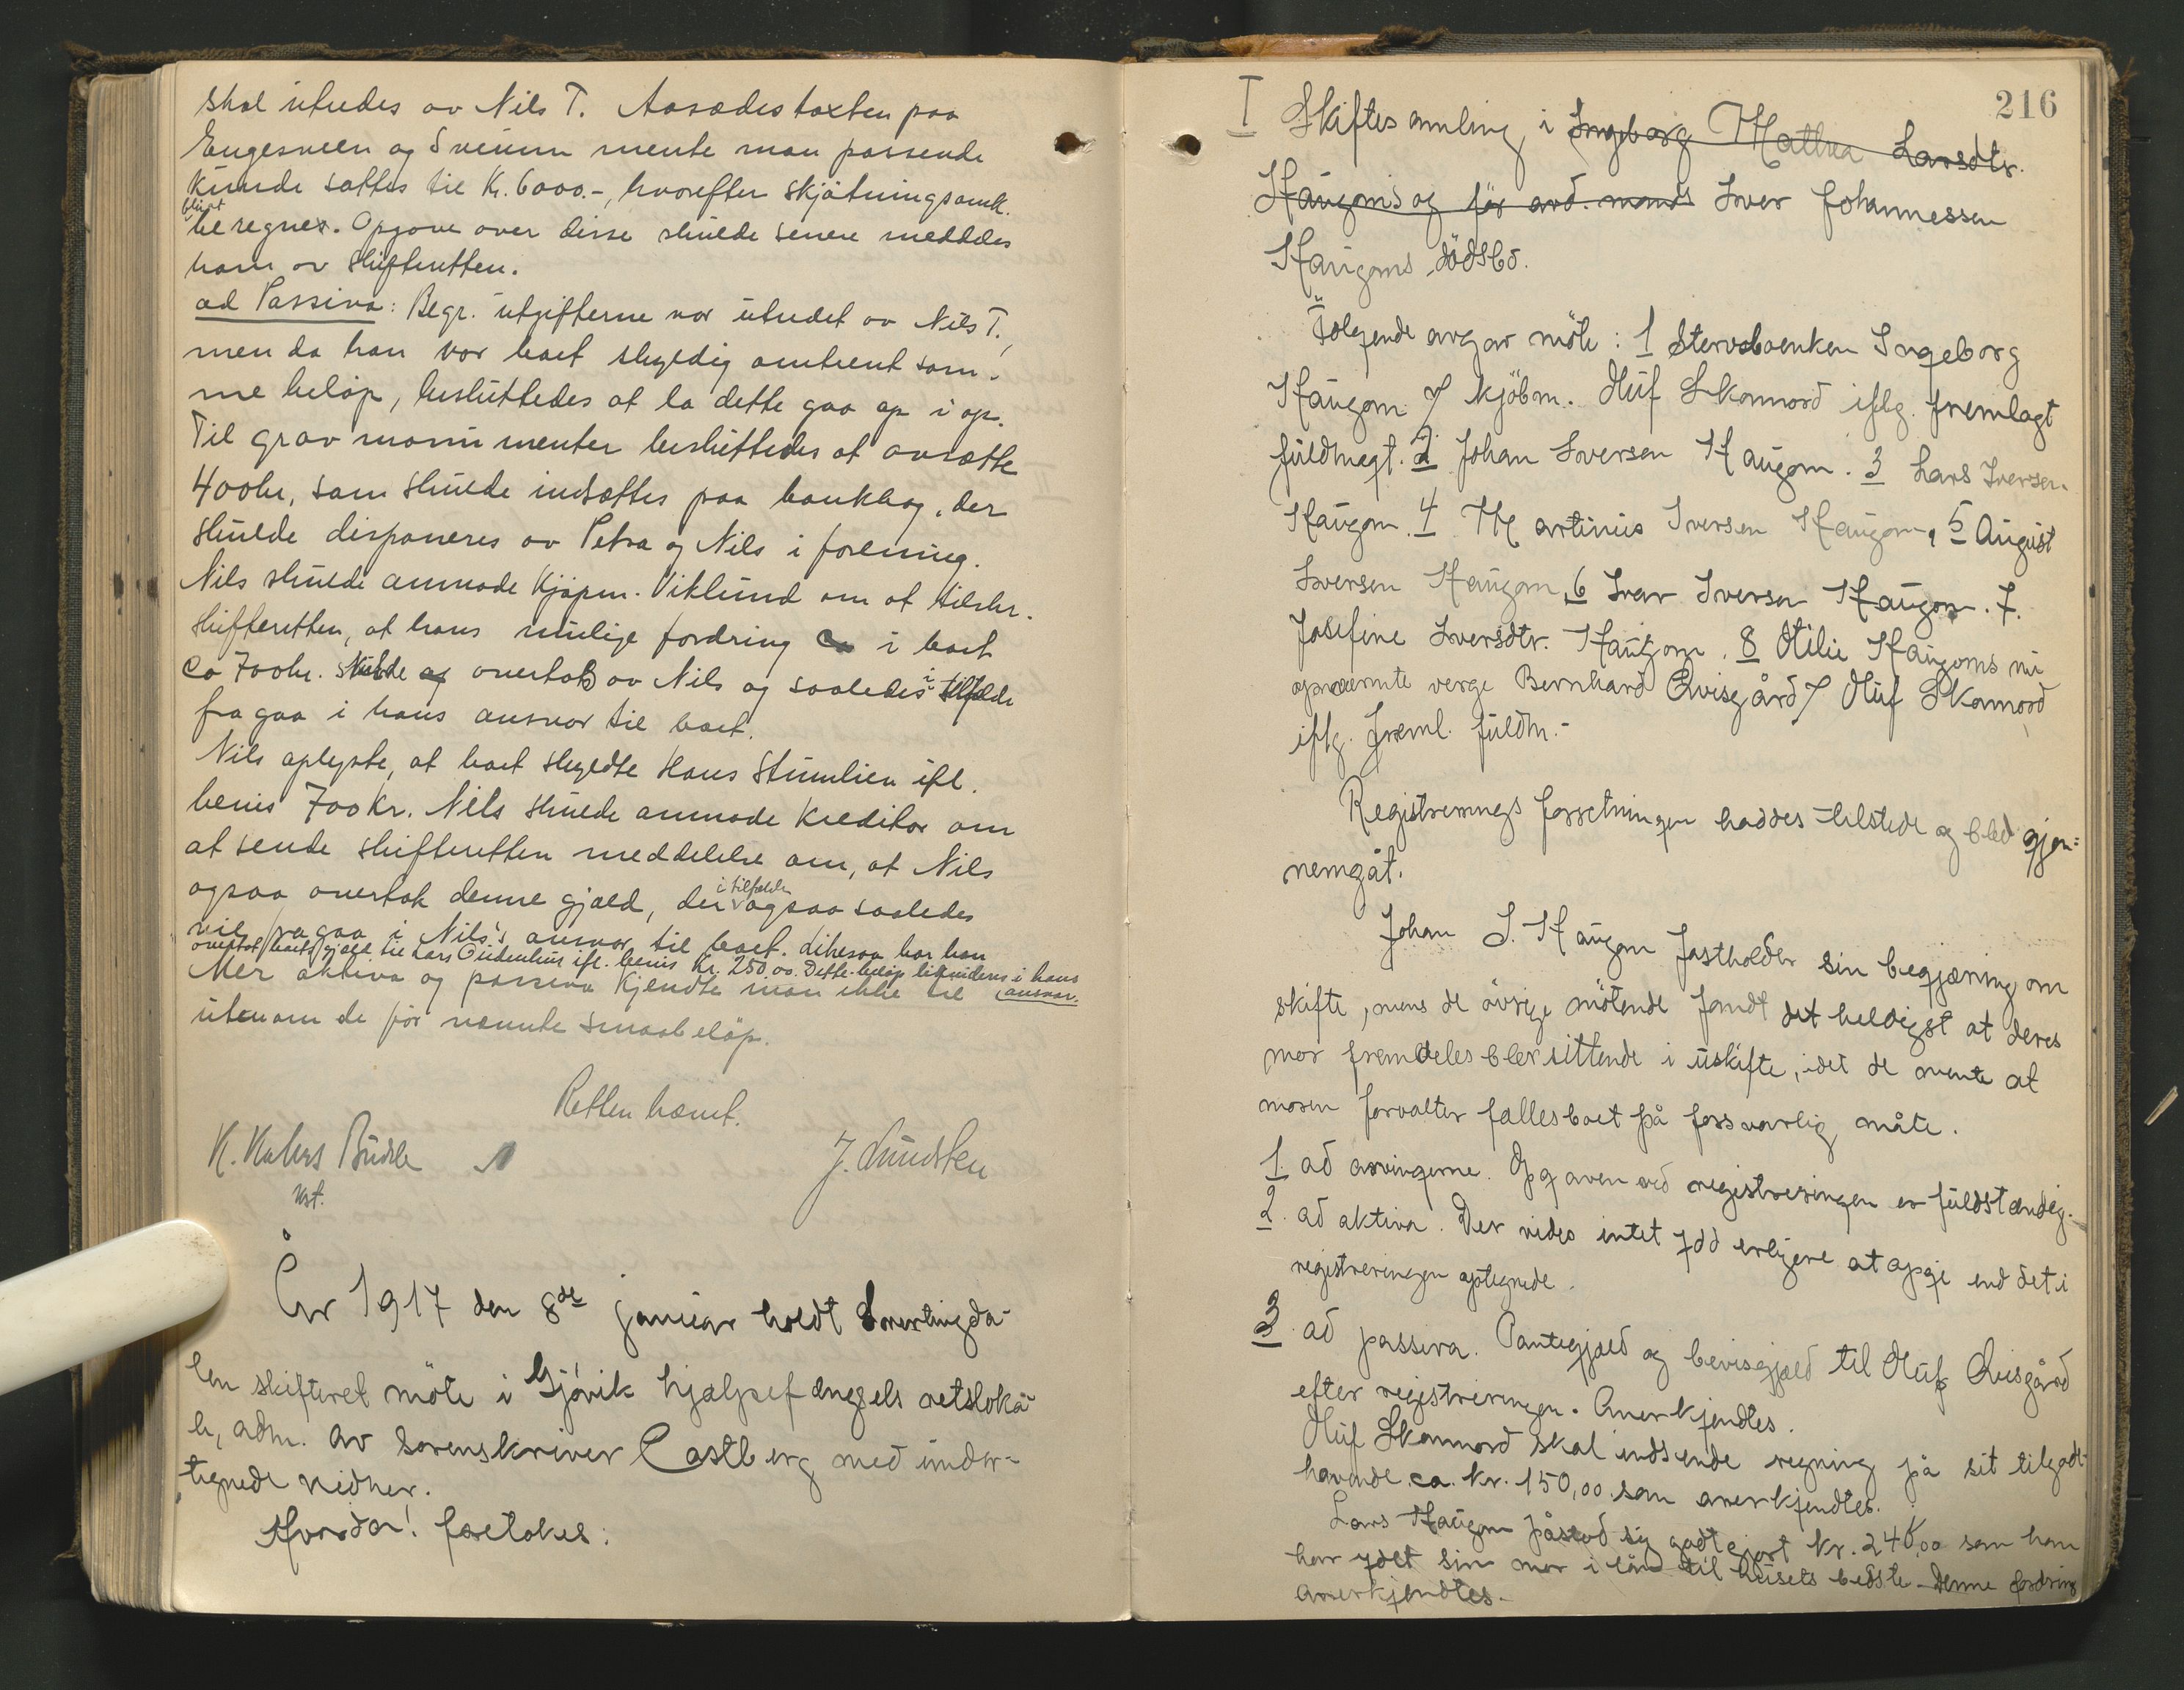 skal utredes av Nils T. Aasædestaxten paa
Engesveen og Sveum mente man passende
kunde sættes til Kr. 6000.-, hvorefter skjøtningsomk.
blivt
beregnes. Opgave over disse skulde senere meddeles
ham av skifteretten.
ad Passiva: Begr. utgifterne var utredet av Nils T.,
men da han var boet skyldig omtrent sam-
me beløp, besluttedes at la dette gaa op i op.
Til gravmonumenter besluttedes at avsætte
400 kr, som skulde indsættes paa bankbog, der
skulde disponeres av Petra og Nils i forening.
Nils skulde anmode kjøpm. Viklund om at tilskr.
skifteretten, at hans mulige fordring i boet
ca 700 kr. skulde overtas av Nils og saaledes i tilfælde
fragaa i hans ansvar til boet.
Nils oplyste, at boet skyldte Hans Stumlien ifl.
bevis 700 kr. Nils skulde anmode kreditor om
at sende skifteretten meddelelse om, at Nils
i tilfælde
ogsaa overtok denne gjæld, der ogsaa saaledes
vil fragaa i Nils's ansvar til boet. Likesaa har han
overtat boets gjæld til Lars Oudenhus ifl. bevis Kr. 250.00. Dette beløp likvideres i hans
ansvar.
Mer aktiva og passiva kjendte man ikke til
utenom de før nævnte smaabeløp.
Retten hævet.
J. Lundsten
kst.
År 1917 den 8de januar holdt Snertingda-
len skifteret möte i Gjövik hjælpefængsels retsloka-
le, adm. av sorenskriver Castberg med under-
tegnede vidner.
Hvorda! foretokes:
216
I Skiftesamling i Ingeborg Mathea Larsdtr.
Haugoms og før avd. mands Iver Johannessen
Haugoms dödsbo.
Følgende avgav möte: 1 Stervboenken Ingeborg
Haugom v/ kjöbm. Oluf Skonnord iflg. fremlagt
fuldmagt. 2 Johan Iversen Haugom. 3 Lars Iversen
Haugom. 4 Martinus Iversen Haugom, 5 August
Iversen Haugom, 6 Ivar Iversen Haugom. 7.
Josefine Iversdtr. Haugom. 8 Otilie Haugoms nu
opnævnte verge Bernhard Qvisgård v/ Oluf Skonnord
iflg. freml. fuldm.-
Registreringsforretningen haddes tilstede og blev gjen-
nemgåt.
Johan I. Haugom fastholder sin begjæring om
skifte, mens de övrige mötende fandt det heldigst at deres
mor fremdeles blev sittende i uskifte, idet de mente at
moren forvalter fællesboet på forsvarlig måte.
1. ad arvingerne. Opgaven ved registreringen er fuldstændig.
2. ad aktiva. Der vides intet ydd erligere at opgi end det i
registreringen optegnede.
3. ad passiva. Pantegjæld og bevisgjæld til Oluf Qvisgård
efter registreringen. Anerkjendtes.
Oluf Skonnord skal indsende regning på sit tilgodt-
havende ca. kr. 150,00 som anerkjendtes.
Lars Haugom påstod sig godtgjort kr. 240,00 som han
har ydet sin mor i lån til husets bedste. Denne fordring
anerkjendtes.-